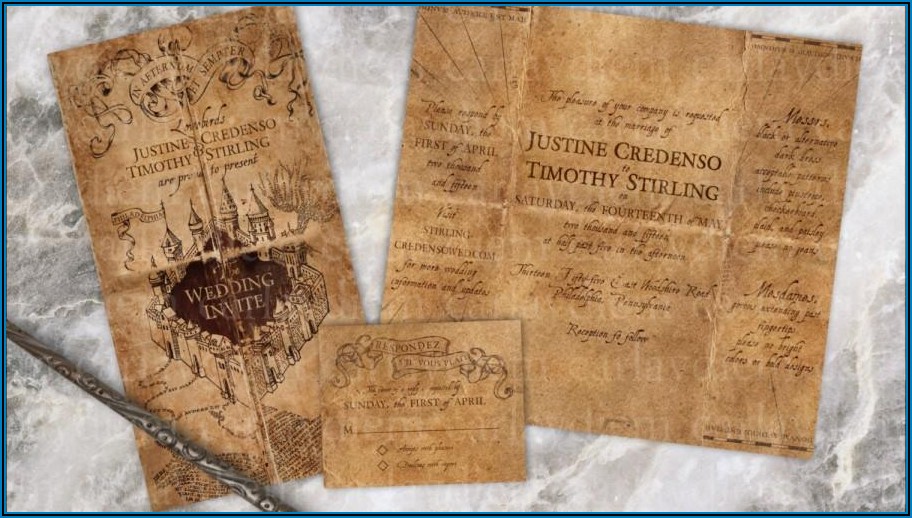 IN AETERNUM
ET SEMPITER
Lovebirds
JUSTINE CREDENSO
&
TIMOTHY STIRLING
are proud to present
PHILADELPHIA
The
WEDDING
INVITE
Please respond by
SUNDAY, the
FIRST of APRIL
two thousand
and fifteen
Visit
STIRLING-
CREDENSOWED.COM
for more wedding
information and updates
The pleasure of your company is requested
at the marriage of
JUSTINE CREDENSO
to
TIMOTHY STIRLING
on
SATURDAY, the FOURTEENTH of MAY
two thousand and fifteen
at half past five in the afternoon
Thirteen Fifty-five East Woodshire Road
Philadelphia, Pennsylvania
Reception to follow
Messrs,
black or alternative
dark dress
acceptable patterns
include pinstripe,
checkerboard,
plaid, and paisley
please no jeans
Mesdames,
gowns extending past
fingertips
please no bright
colors or bold designs
RESPONDEZ
S'IL VOUS PLAIT
SUNDAY, the FIRST of APRIL
M
Accepts with pleasure
Declines with regret